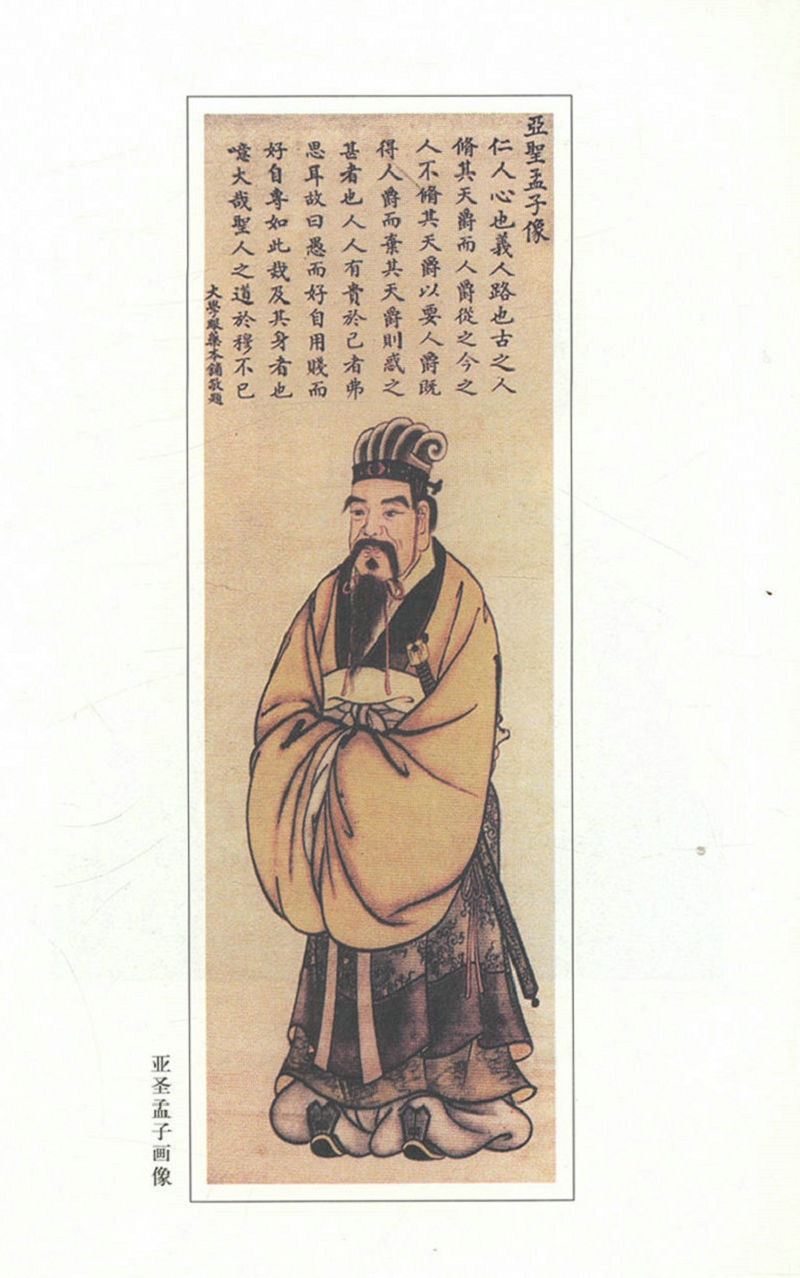 亞聖孟子像
仁人心也義人路也古之人
脩其天爵而人爵從之今之
人不脩其天爵以要人爵既
得人爵而棄其天爵則惑之
甚者也人人有貴於己者弗
思耳故曰愚而好自用賤而
好自專如此烖及其身者也
噫大哉聖人之道於穆不已
大學眼藥本鋪敬題
亚圣孟子画像